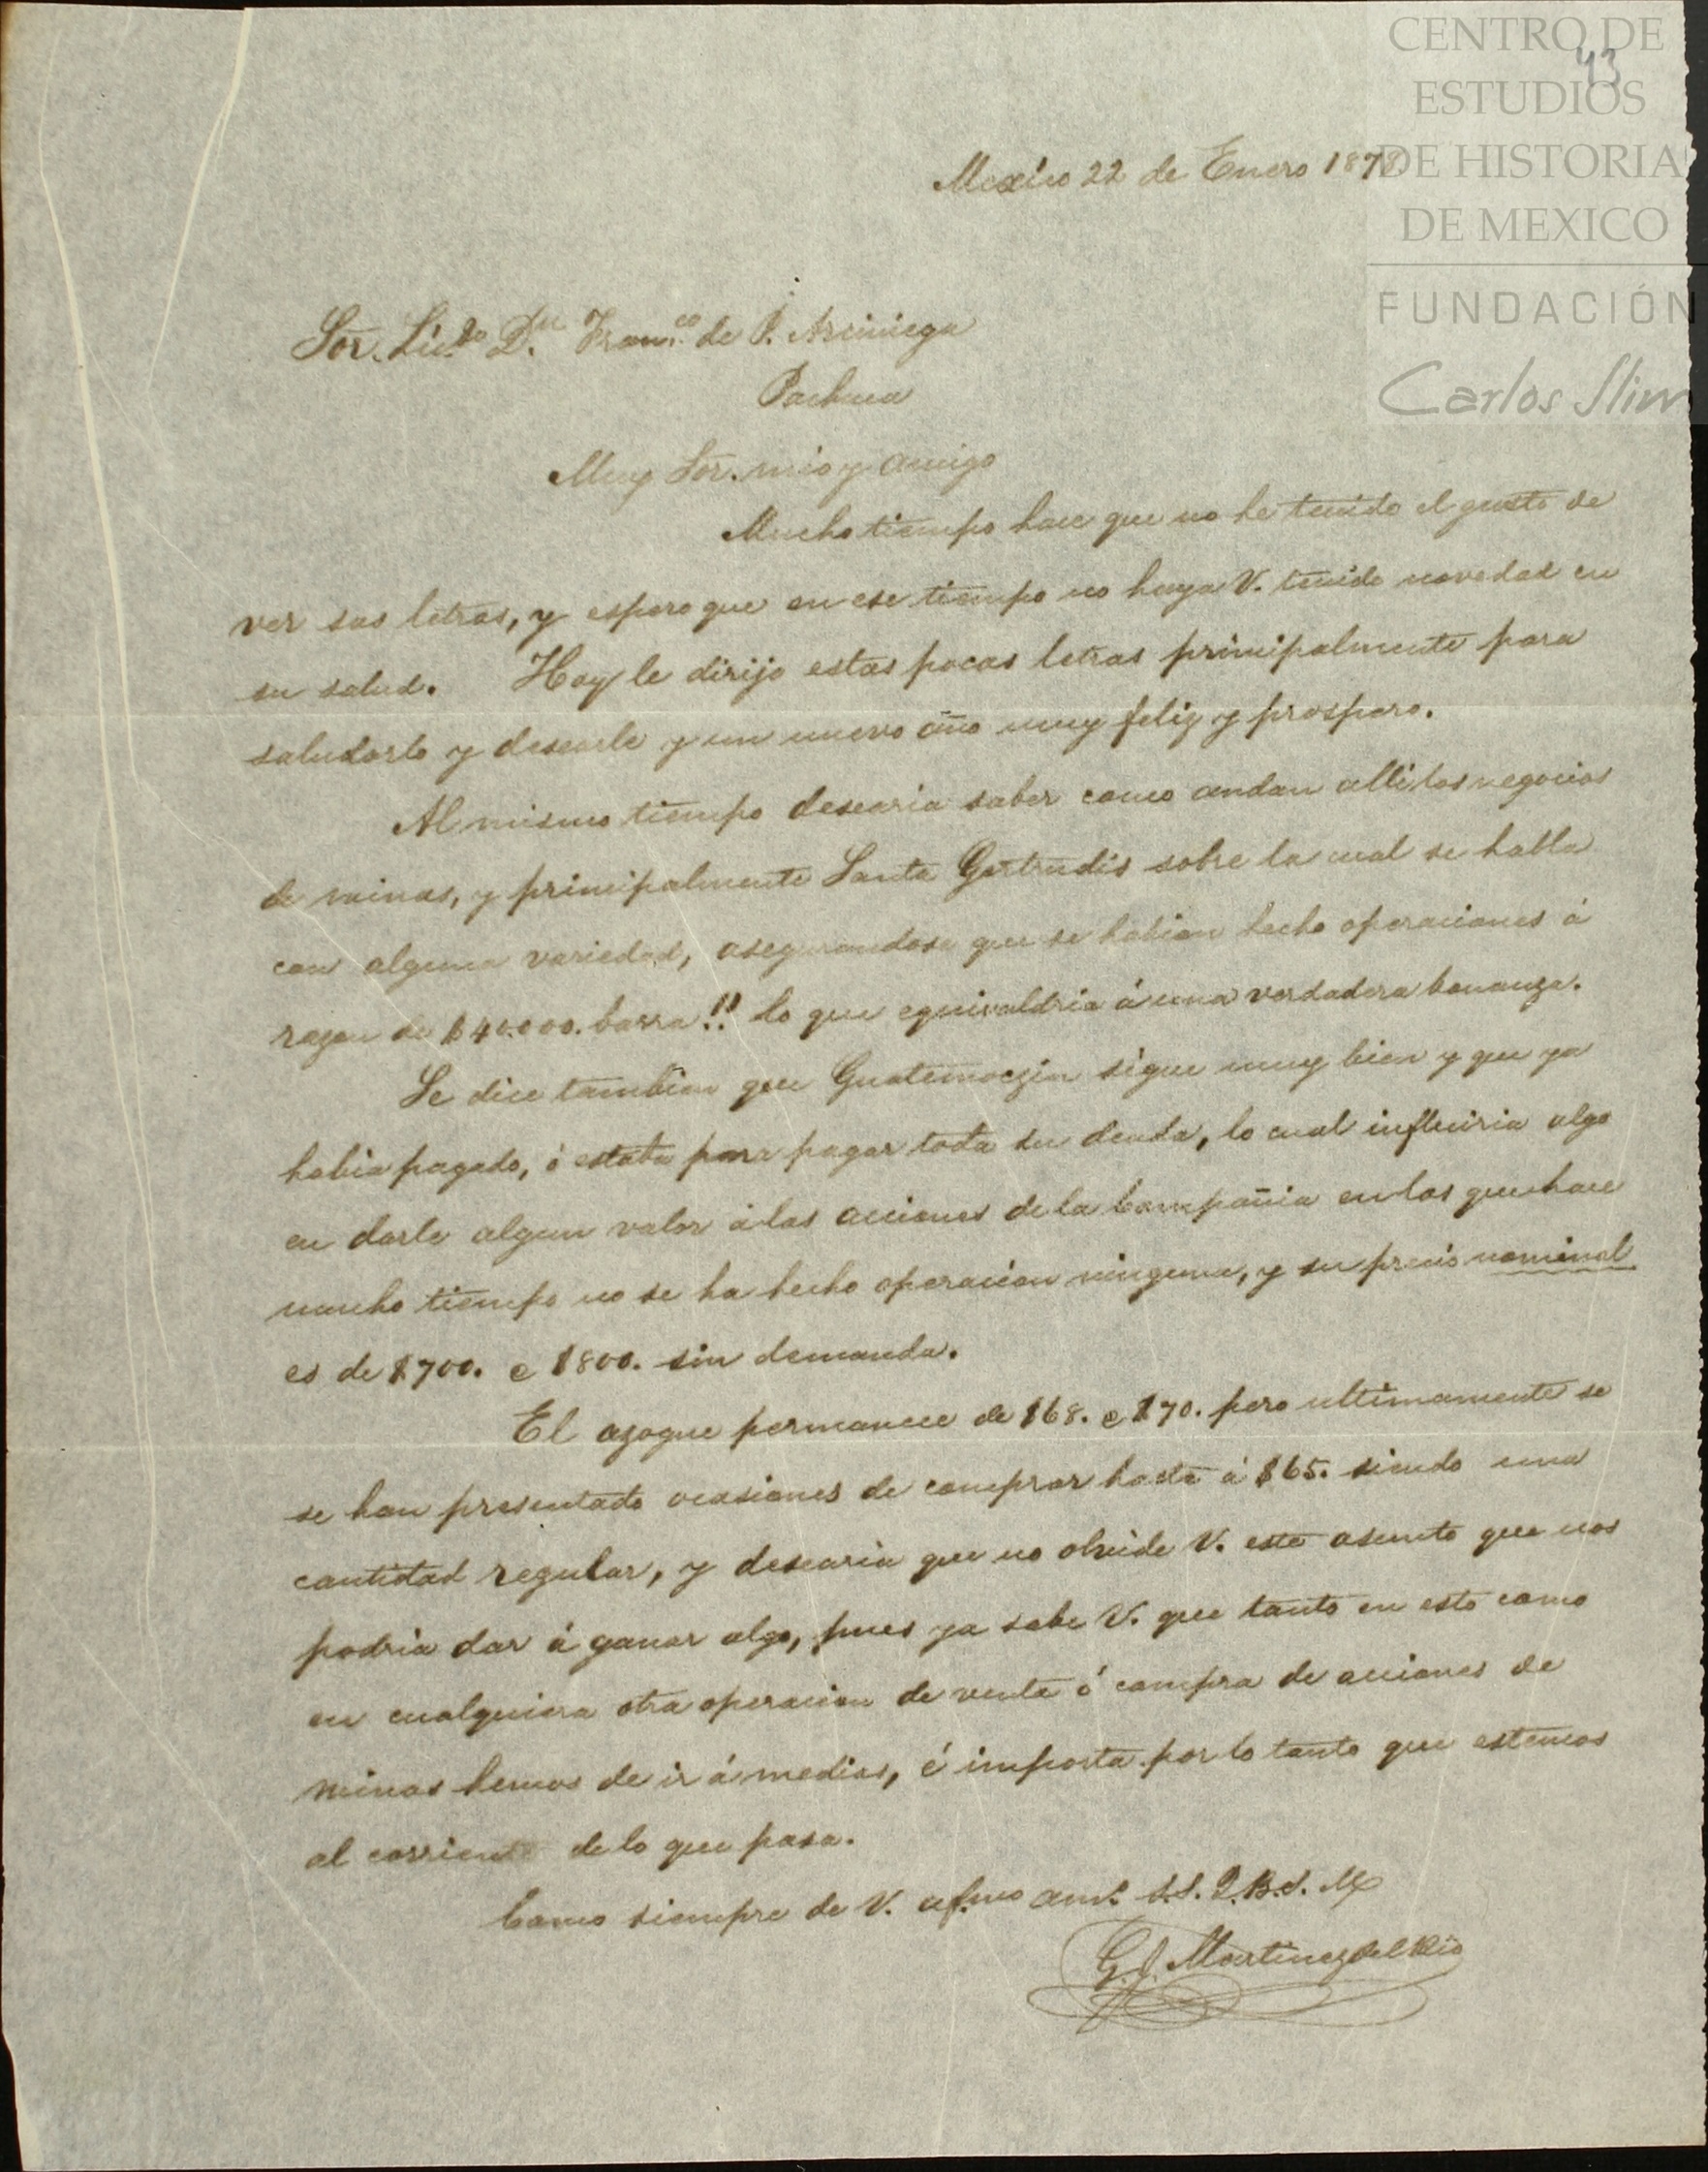 CENTRO DE
ESTUDIOS
DE HISTORIA
DE MEXICO
FUNDACIÓN
Carlos Slim
43
Mexico 22 de Enero 1878
Sor. Lic.do D.n Fran.co de P. Arciniega
Pachuca
Muy Sor. mio y amigo
Mucho tiempo hace que no he tenido el gusto de
ver sus letras, y espero que en ese tiempo no haya V. tenido novedad en
su salud. Hoy le dirijo estas pocas letras principalmente para
saludarlo y desearle y un nuevo año muy feliz y prospero.
Al mismo tiempo desearia saber como andan alli los negocios
de minas, y principalmente Santa Gertrudis sobre la cual se habla
con alguna variedad, asegurandose que se habian hecho operaciones á
razon de $40.000. barra!! lo que equivaldria á una verdadera bonanza.
Se dice tambien que Guatemoczin sigue muy bien y que ya
habia pagado, ó estaba para pagar toda su deuda, lo cual influiria algo
en darle algun valor á las acciones de la Compañia en las que hace
mucho tiempo no se ha hecho operacion ninguna, y su precio nominal
es de $700. @ $800. sin demanda.
El azogue permanece de $68. @ $70. pero ultimamente se
se han presentado ocasiones de comprar hasta á $65. siendo una
cantidad regular, y desearia que no olvide V. este asunto que nos
podria dar á ganar algo, pues ya sabe V. que tanto en esto como
en cualquiera otra operacion de venta ó compra de acciones de
minas hemos de ir á medias, é importa por lo tanto que estemos
al corriente de lo que pasa.
Como siempre de V. af.mo am.o S.S. Q.B.S.M.
G. J. Martinez del Rio